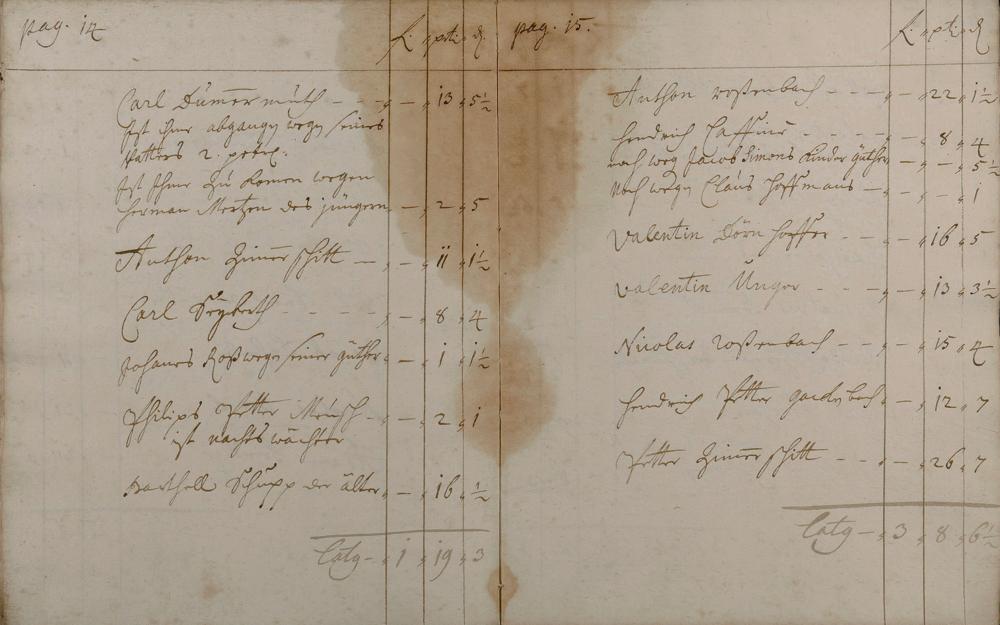 pag. 14 f. pti. d
Carl Dümermuth - - - - 13 5½
Jst Ihme abgangen wegen seines
Vatters 2. pti.
Jst Ihme zu komen wegen
Herman Mertzen des jüngern - 2 5
Anthon Zimerschitt - - 11 1½
Carl Seyberth - - - - 8 4
Johanes Roß wegen seiner güther - 1 1½
Philips Petter Mensch - - 2 1
ist nachts wächter
Barthell Schupp der älter - 16 ½
Latg - 1 19 3
pag. 15. f. pti d
Anthon roßenbach - - - - 22 1½
Hendrich - - - - - 8 4
noch weg Jacob Simons Kinder güther - - 5½
Noch wegen Claus Hoffmans - - - 1
Valentin Dörnhoffer - - - 16 5
Valentin Unger - - - - 13 3½
Nicolas roßenbach - - - - 15 4
Hendrich Petter - - 12 7
Petter Zimerschitt - - - - 26 7
Latg - 3 8 6½